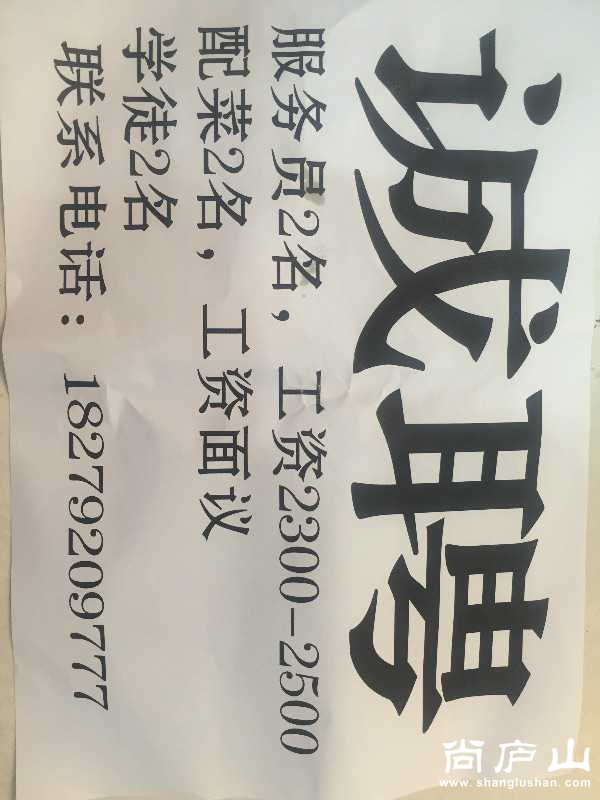 诚聘
服务员2名，工资2300-2500
配菜2名，工资面议
学徒2名
联系电话：18279209777
尚庐山
www.shanglushan.com